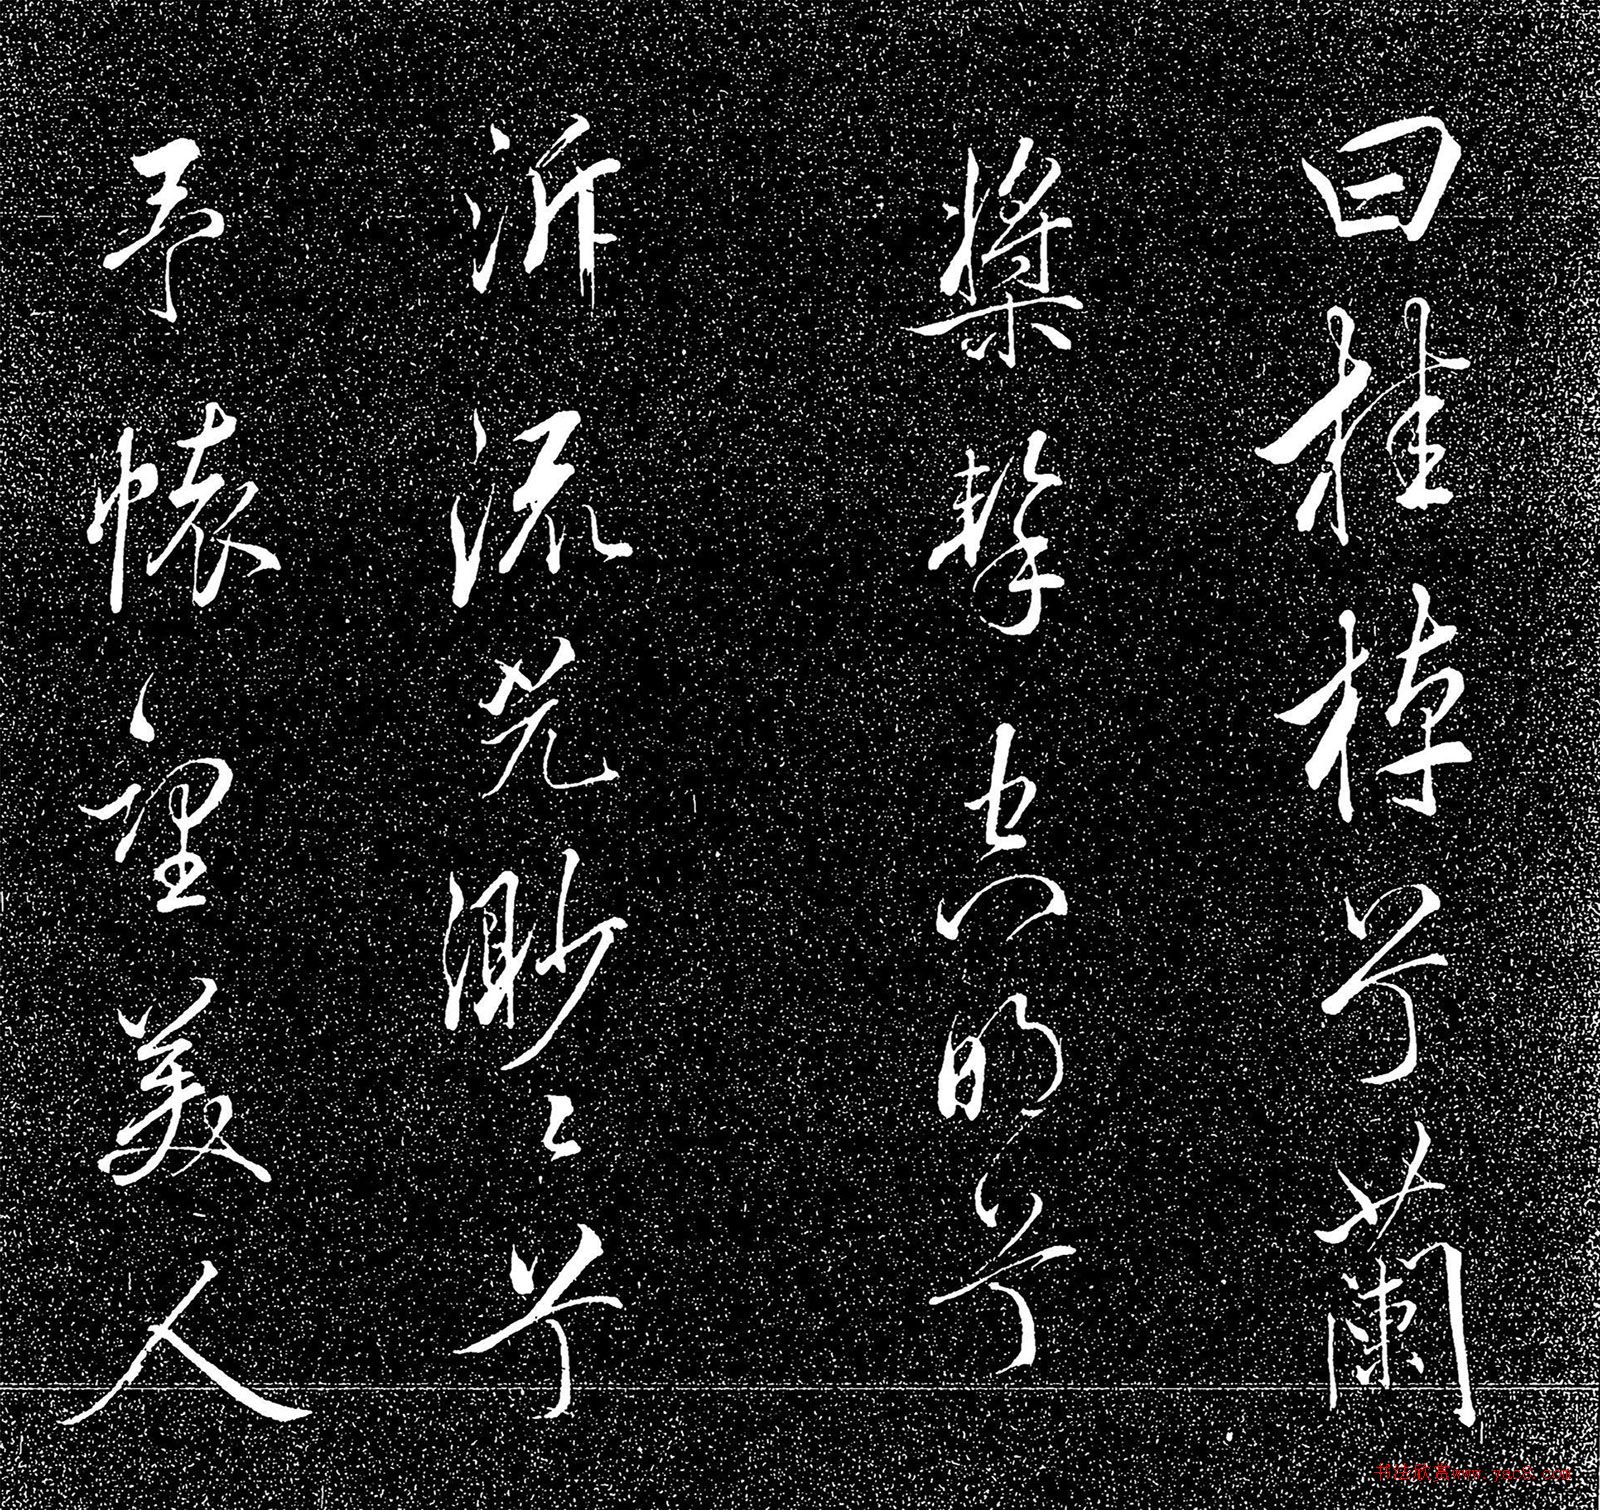 曰桂棹兮蘭
槳擊空明兮
泝流光渺〻兮
予懷望美人
书法欣赏www.yac8.com